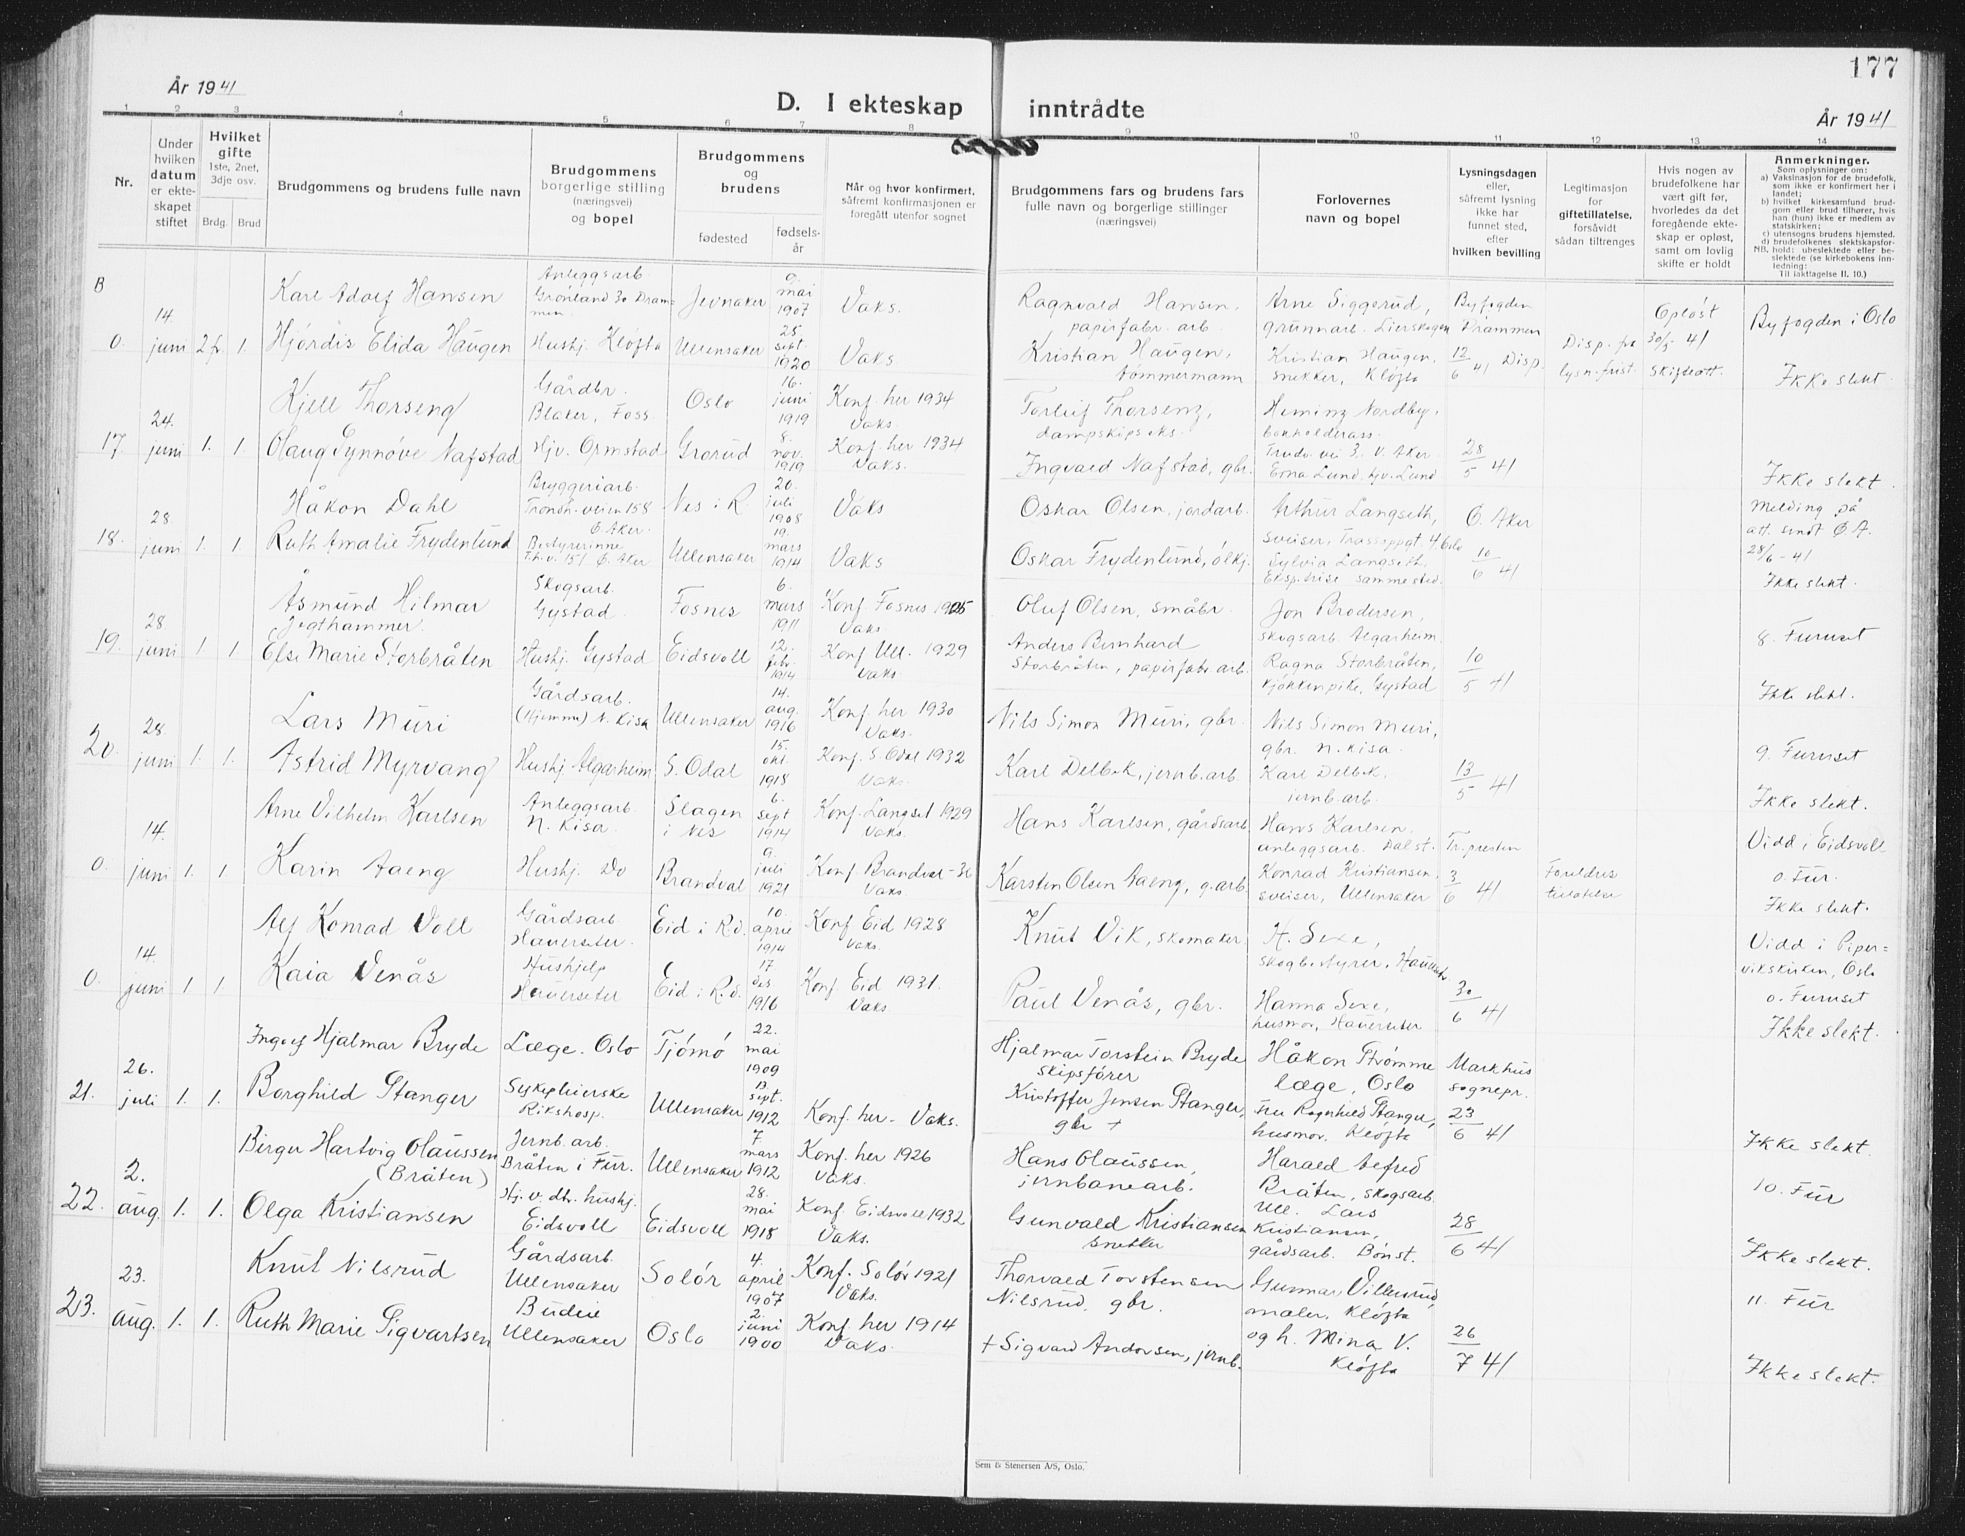 177
År 1941
D. I ekteskap inntrådte
År 1941
1 2 3 4 5 6 7 8 9 10 11 12 13 14
Nr.
Under hvilken datum er ekteskapet stiftet
Hvilket gifte
1ste, 2net, 3dje osv.
Brdg. Brud
Brudgommens og brudens fulle navn
Brudgommens borgerlige stilling (næringsvei) og bopel
Brudgommens og brudens
fødested
fødselsår
Når og hvor konfirmert, såfremt konfirmasjonen er foregått utenfor sognet
Brudgommens fars og brudens fars fulle navn og borgerlige stillinger (næringsvei)
Forlovernes navn og bopel
Lysningsdagen eller, såfremt lysning ikke har funnet sted, efter hvilken bevilling
Legitimasjon for giftetillatelse, forsåvidt sådan tiltrenges
Hvis nogen av brudefolkene har vært gift før, hvorledes da det foregående ekteskap er opløst, samt om lovlig skifte er holdt
Anmerkninger.
Som oplysninger om:
a) Vaksinasjon for de brudefolk, som ikke er konfirmert her i landet;
b) hvilket kirkesamfund brudgom eller brud tilhører, hvis han (hun) ikke er medlem av statskirken;
c) utensogns brudens hjemsted.
d) brudefolkenes slektskapsforhold: ubeslektede eller beslektede (se kirkebokens innledning:
NB. Til iakttagelse II. 10.)
B
0. 14. juni 2 fr. 1.
Karl Adolf Hansen
Anleggsarb. Grønland 30 Drammen
Jevnaker
9 mai 1907
Vaks.
Ragnvald Hansen, papirfabr. arb.
Arne Siggerud, grunnarb. Lierskogen
Byfogden Drammen
Opløst 30/5 41
Byfogden i Oslo
Hjørdis Elida Haugen
Hushj. Kløfta
Ullensaker
25 sept. 1920
Vaks
Kristian Haugen, tømmermann
Kristian Haugen, snekker, Kløfta
12/6 41 Disp.
Disp. fra lysn. frist.
Skifteatt.
Ikke slekt.
17. 24. juni 1. 1.
Kjell Thorseng
Gårdbr. Blaker, Foss.
Oslo
16. juni 1919
Konf. her 1934 Vaks.
Torleif Thorseng, dampskipseks.
Heming Nordby, bokholderass.
Olaug Synnøve Nafstad
Hjv. Ormstad
Grorud
8. nov. 1919
Konf. her 1934 Vaks.
Ingvald Nafstad, gbr.
Erna Lund, hjv. Lund
28/5 41
Ikke slekt.
18. 28. juni 1. 1.
Håkon Dahl
Bryggeriarb. Trondh.veien 158 Ø. Aker.
Nes i R.
20. juli 1908
Vaks
Oskar Olsen, jordarb.
Arthur Langseth, sveiser,
Ø. Aker
Melding på att. sendt Ø. A. 28/6 - 41
Ruth Amalie Frydenlund
Bestyrerinne Th.v. 151 Ø. Aker
Ullensaker
19. mars 1914
Vaks
Oskar Frydenlund, ølkj.
Sylvia Langseth, Eksp.trise sammested.
10/6 41
Ikke slekt.
19. 28. juni 1. 1.
Åsmund Hilmar Jegthammer.
Skogsarb. Gystad
Fosnes
6. mars 1911
Konf. Fosnes 1925 Vaks.
Oluf Olsen, småbr.
Jon Brodersen, skogsarb. Algarheim.
8. Furuset
Else Marie Storbråten
Hushj. Gystad
Eidsvoll
12. febr. 1914
Konf. Ull. 1929 Vaks.
Anders Bernhard Storbråten, papirfabr. arb.
Ragna Storbråten, kjøkkenpike, Gystad
10/5 41
Ikke slekt.
20. 28. juni 1. 1.
Lars Muri
Gårdsarb. (Hjemme) N. Kisa
Ullensaker
14. aug. 1916
Konf. her 1930 Vaks.
Nils Simon Muri, gbr.
Nils Simon Muri, gbr. N. Kisa.
9. Furuset
Astrid Myrvang
Hushj. Algarheim
S. Odal
15. okt. 1918
Konf. S. Odal 1932 Vaks.
Karl Delbek, jernb.arb.
Karl Delbek, jernb.arb.
13/5 41
Ikke slekt.
0. 14. juni 1. 1.
Arne Vilhelm Karlsen
Anleggsarb. N. Kisa.
Slagen i Nes
6. sept 1914
Konf. Langset 1929 Vaks.
Hans Karlsen, gårdsarb.
Hans Karlsen, anleggsarb. Dalst.
Tr. presten
Vidd i Eidsvoll
Karin Aaeng
Hushj. Do
Brandval
9. juli 1921
Konf. Brandval - 36 Vaks.
Karsten Olsen Aaeng, g.arb.
Konrad Kristiansen, sveiser, Ullensaker
3/6 41
Foreldres tillatelse
o. Fur.
Ikke slekt.
0. 14. juni 1 1
Alf Konrad Voll
Gårdsarb. Hauerseter.
Eid i R.d.
10. april 1914
Konf. Eid 1928 Vaks.
Knut Vik, skomaker
H. Sexe, skogbestyrer,
Vidd i Pipervikskirken, Oslo
Kaia Venås
Hushjelp Hauerseter
Eid i R.d.
17 des 1916
Konf. Eid 1931. Vaks.
Paul Venås, gbr.
Hanna Sexe, husmor, Hauerseter
30/6 41
o. Furuset
Ikke slekt.
21. 26. juli 1. 1.
Ingolf Hjalmar Bryde
Læge. Oslo
Tjømø
22. mai 1909
Hjalmar Torstein Bryde skipsfører
Håkon Strømme læge, Oslo
Markhus sognepr.
Borghild Stanger
Sykepleierske Rikshosp.
Ullensaker
13. sept. 1912
Konf. her. Vaks.
Kristoffer Jensen Stanger, gbr +
Fru Ragnhild Stanger, husmor, Kløfta
23/6 41
Ikke slekt.
22. 2. aug. 1. 1.
Birger Hartvig Olaussen (Bråten)
Jernb. arb. Bråten i Fur.
Ullensaker
7 mars 1912
Konf. her 1926 Vaks.
Hans Olaussen, jernbanearb.
Harald Alfred Bråten, skogsarb. Ull.
10. Fur
Olga Kristiansen
Hj. v. dtr. hushj. Eidsvoll
Eidsvoll
28. mai 1918
Konf. Eidsvoll 1932 Vaks.
Gunvald Kristiansen snekker
Lars Kristiansen, gårdsarb. Bønst.
28/6 41
Ikke slekt.
23. 23. aug. 1. 1.
Knut Nilsrud
Gårdsarb. Ullensaker
Solør
4. april 1907
Konf. Solør 1921 Vaks.
Thorvald Torstensen Nilsrud, gbr.
Gunnar Villerud, maler, Kløfta
11. Fur
Ruth Marie Sigvartsen
Budeie Ullensaker
Oslo
2. juni 1900
Konf. her 1914 Vaks.
+ Sigvard Andersen, jernb.
og h. Mina V. Kløfta
26/7 41
Ikke slekt.
Sem & Stenersen A/S, Oslo.